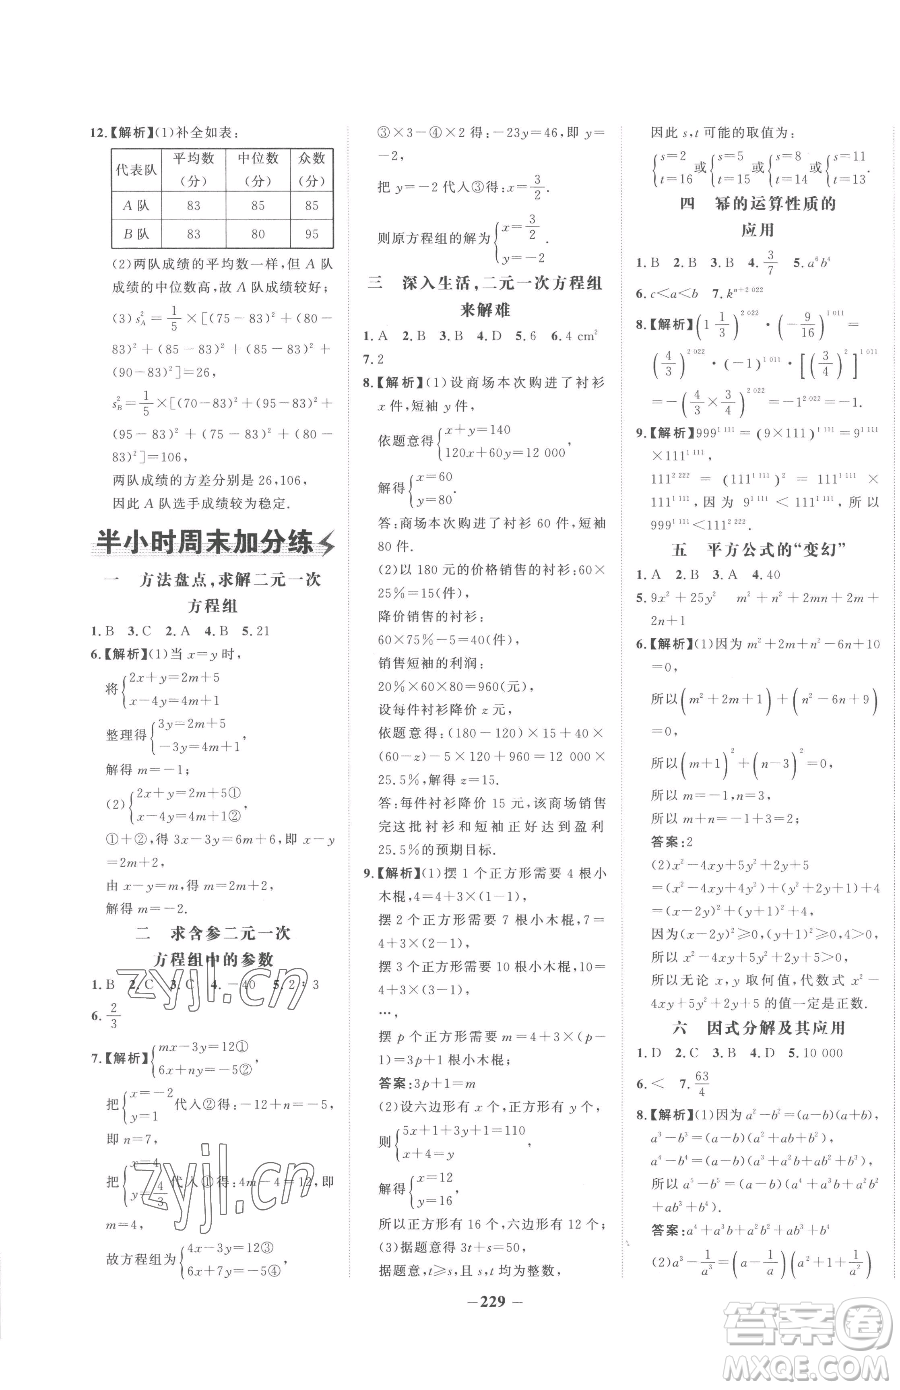 12.【解析】(1)补全如表:
代表队 平均数(分) 中位数(分) 众数(分)
A 队 83 85 85
B 队 83 80 95
(2)两队成绩的平均数一样,但 A 队
成绩的中位数高,故 A 队成绩较好;
(3)s_A^2=1/5×[(75-83)^2+(80-
83)^2+(85-83)^2+(85-83)^2+
(90-83)^2]=26,
s_B^2=1/5×[(70-83)^2+(95-83)^2+
(95-83)^2+(75-83)^2+(80-
83)^2]=106,
两队成绩的方差分别是 26,106,
因此 A 队选手成绩较为稳定.
半小时周末加分练
一 方法盘点,求解二元一次
方程组
1.B 3.C 2.A 4.B 5.21
6.【解析】(1)当 x=y 时,
将{2x+y=2m+5
x-4y=4m+1
整理得{3y=2m+5
-3y=4m+1,
解得 m=-1;
(2){2x+y=2m+5①
x-4y=4m+1②
①+②,得 3x-3y=6m+6,即 x-
y=2m+2,
由 x-y=m,得 m=2m+2,
解得 m=-2.
二 求含参二元一次
方程组中的参数
1.B 2.C 3.C 4.-40 5.2:3
6. 2/3
7.【解析】{mx-3y=12①
6x+ny=-5②,
把{x=-2
y=1 代入②得:-12+n=-5,
即 n=7,
把{x=4
y=-4/3 代入①得:4m-4=12,即
m=4,
故方程组为{4x-3y=12③
6x+7y=-5④
③×3-④×2 得:-23y=46,即 y=
-2,
把 y=-2 代入③得:x=3/2.
则原方程组的解为{x=3/2
y=-2.
三 深入生活,二元一次方程组
来解难
1.A 2.B 3.B 4.D 5.6 6.4 cm^2
7.2
8.【解析】(1)设商场本次购进了衬衫
x 件,短袖 y 件,
依题意得{x+y=140
120x+60y=12 000,
解得{x=60
y=80.
答:商场本次购进了衬衫 60 件,短袖
80 件.
(2)以 180 元的价格销售的衬衫:60×
25%=15(件),
降价销售的衬衫:
60×75%-5=40(件),
销售短袖的利润:
20%×60×80=960(元),
设每件衬衫降价 z 元,
依题意得:(180-120)×15+40×
(60-z)-5×120+960=12 000×
25.5%,解得 z=15.
答:每件衬衫降价 15 元,该商场销售
完这批衬衫和短袖正好达到盈利
25.5%的预期目标.
9.【解析】(1)摆 1 个正方形需要 4 根小
木棍,4=4+3×(1-1),
摆 2 个正方形需要 7 根小木棍,7=
4+3×(2-1),
摆 3 个正方形需要 10 根小木棍,10=
4+3×(3-1),
…,
摆 p 个正方形需要 m=4+3×(p-
1)=3p+1 根小木棍;
答案:3p+1=m
(2)设六边形有 x 个,正方形有 y 个,
则{5x+1+3y+1=110
x+4=y ,
解得{x=12
y=16,
所以正方形有 16 个,六边形有 12 个;
(3)据题意得 3t+s=50,
据题意,t≥s,且 s,t 均为整数,
因此 s,t 可能的取值为:
{s=2
t=16 或{s=5
t=15 或{s=8
t=14 或{s=11
t=13.
四 幂的运算性质的
应用
1.B 2.B 3.B 4. 3/7 5.a^4b^4
6.c<a<b 7.k^{n+2 022}
8.【解析】(1 1/3)^{2 022}·(-9/16)^{1 011}=
(4/3)^{2 022}·(-1)^{1 011}·[(3/4)^2]^{1 011}
=-(4/3×3/4)^{2 022}=-1^{2 022}=-1.
9.【解析】999^{1 111}=(9×111)^{1 111}=9^{1 111}
×111^{1 111},
111^{2 222}=(111^{1 111})^2=111^{1 111}×
111^{1 111},因为 9^{1 111}<111^{1 111},所以
999^{1 111}<111^{2 222}.
五 平方公式的“变幻”
1.A 2.B 3.A 4.40
5.9x^2+25y^2 m^2+n^2+1-2mn+2m+
2n+1
6.【解析】(1)因为 m^2+2m+n^2-6n+10
=0,
所以(m^2+2m+1)+(n^2-6n+9)
=0,
所以(m+1)^2+(n-3)^2=0,
所以 m=-1,n=3,
所以 m+n=-1+3=2;
答案:2
(2)x^2-4xy+5y^2+2y+5
=x^2-4xy+4y^2+y^2+2y+1+4
=(x-2y)^2+(y+1)^2+4,
因为(x-2y)^2≥0,(y+1)^2≥0,
所以(x-2y)^2+(y+1)^2+4≥4,
所以无论 x,y 取何值,代数式 x^2-
4xy+5y^2+2y+5 的值一定是正数.
六 因式分解及其应用
1.D 2.C 3.B 4.D 5.10 000
6.< 7. 63/4
8.【解析】(1)因为 a^2-b^2=(a-b)(a+b),
a^3-b^3=(a-b)(a^2+ab+b^2),
a^4-b^4=(a-b)(a^3+a^2b+ab^2+b^3),
所以 a^5-b^5=(a-b)(a^4+a^3b+a^2b^2
+ab^3+b^4);
答案:a^4+a^3b+a^2b^2+ab^3+b^4
(2)a^3-1/a^3=(a-1/a)(a^2+1+1/a^2)
- 229 -
zyjl.cn
zyjl.cn
答案圈
MXQE.COM